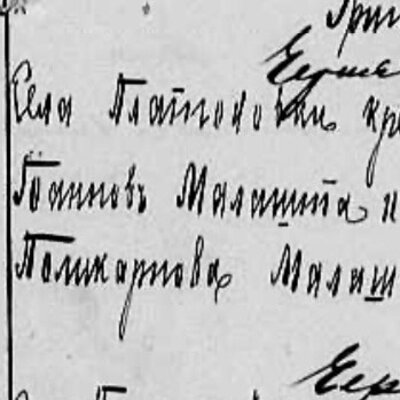 Гри
Села Платоновки кр
Іоанновъ Малашта и
Поликарпова Малаш